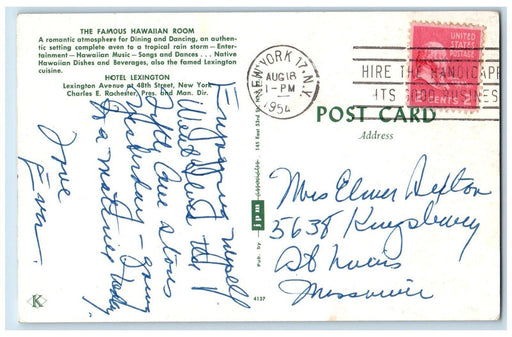 THE FAMOUS HAWAIIAN ROOM
A romantic atmosphere for Dining and Dancing, an authen-
tic setting complete even to a tropical rain storm — Enter-
tainment — Hawaiian Music — Songs and Dances . . . Native
Hawaiian Dishes and Beverages, also the famed Lexington
cuisine.
HOTEL LEXINGTON
Lexington Avenue at 48th Street, New York
Charles E. Rochester, Pres. and Man. Dir.
Enjoying myself
Went thru the
Fifth Ave stores
yesterday - going
to a matinee today
Love
Eva.
K
Pub. by jpm
4137
NEW YORK 17, N.Y.
AUG 18
1 - PM
1954
UNITED STATES
POSTAGE
2 CENTS 2
HIRE THE HANDICAPPED
ITS GOOD BUSINESS
POST CARD
Address
Mrs Elmer Sexton
5638 Kingsbury
St Louis
Missouri